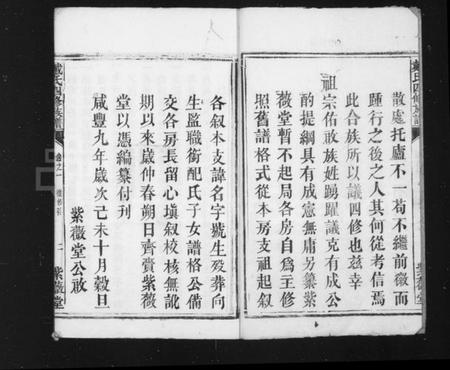 戴氏四修族譜
散處托廬不一苟不繼前徽而
踵行之後之人其何從考信焉
此合族所以議四修也茲幸
祖宗佑啟族姓踴躍議克有成公
酌提綱具有成憲無庸另纂紫
薇堂暫不起局各房自為主修
照舊譜格式從本房支祖起叙
紫薇堂
各叙本支諱名字號生歿葬向
生監職銜配氏子女譜格公備
交各房長留心填叙校核無訛
期以來歲仲春朔日齊賫紫薇
堂以憑編纂付刊
咸豐九年歲次己未十月穀旦
紫薇堂公啟
戴氏四修族譜
卷之一
二
紫薇堂